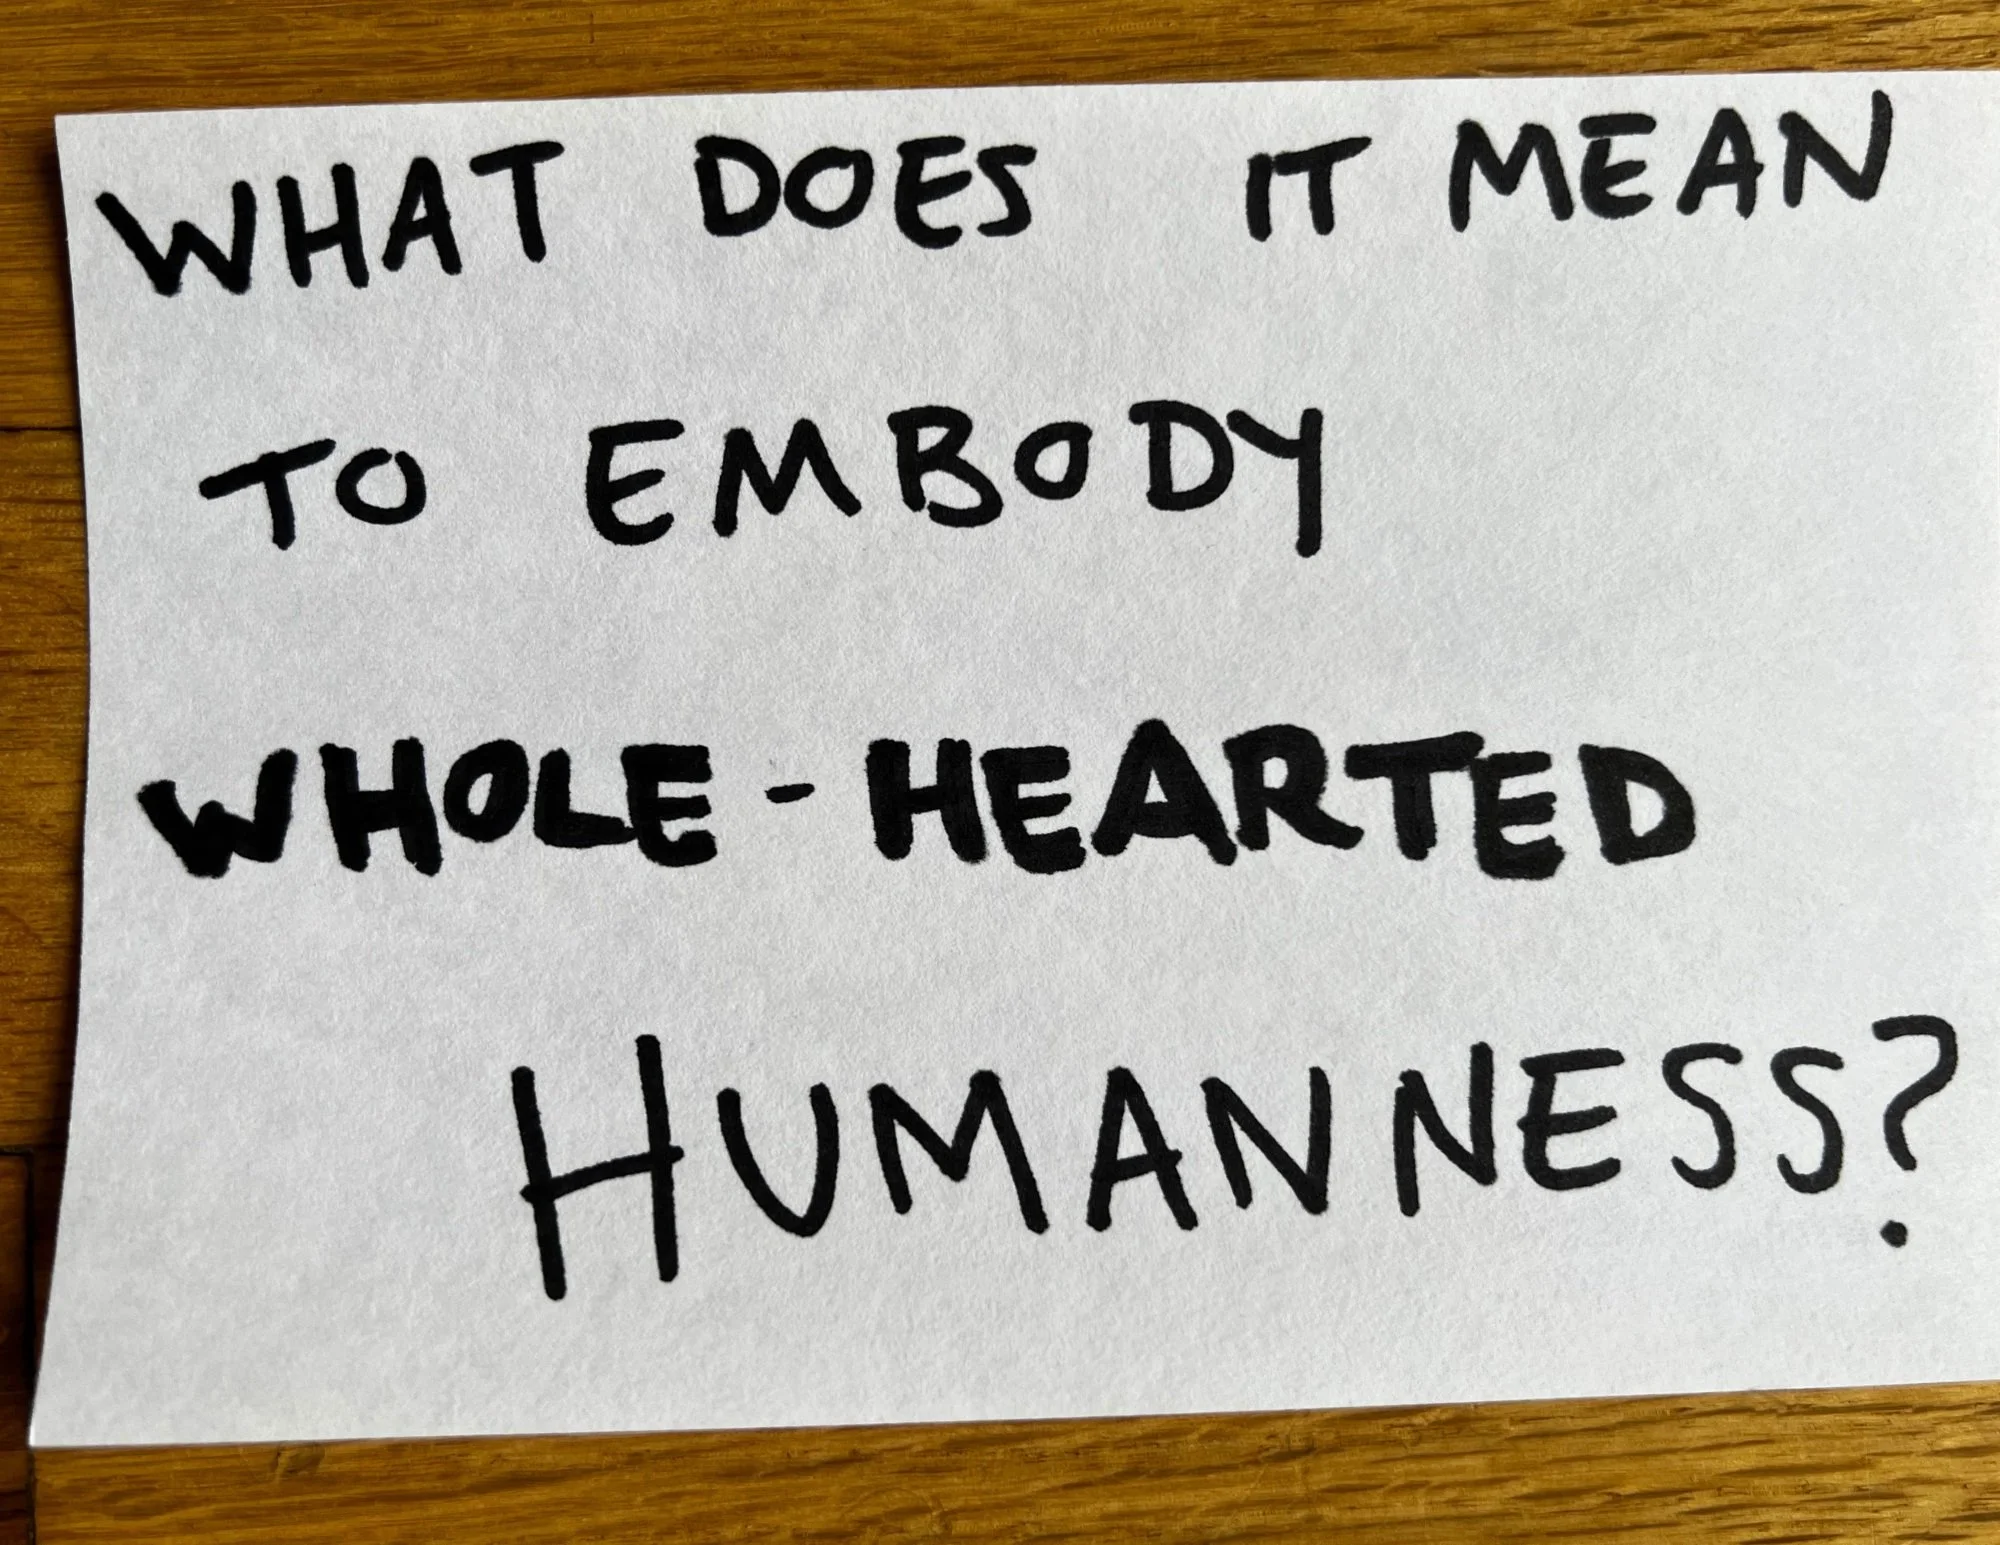 WHAT DOES IT MEAN
TO EMBODY
WHOLE-HEARTED
HUMANNESS?